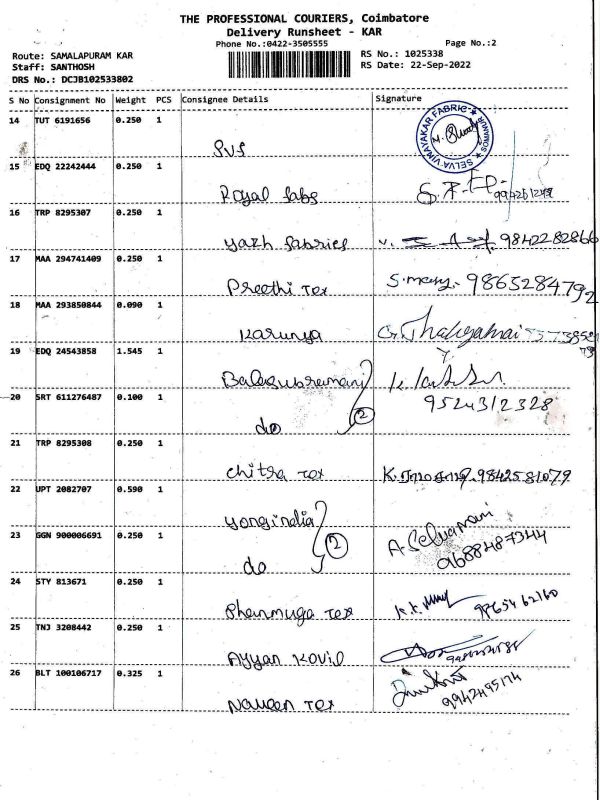 THE PROFESSIONAL COURIERS, Coimbatore
Delivery Runsheet - KAR
Phone No.:0422-3505555 Page No.:2
Route: SAMALAPURAM KAR RS No.: 1025338
Staff: SANTHOSH RS Date: 22-Sep-2022
DRS No.: DCJB102533802
S No Consignment No Weight PCS Consignee Details Signature
14 TUT 6191656 0.250 1
SELVA VINAYAKAR FABRIC
SVS
15 EDQ 22242444 0.250 1
Royal fabs
16 TRP 8295307 0.250 1
Yazh fabrics 9842282866
17 MAA 294741409 0.250 1
Preethi Tex S.many. 9865284792
18 MAA 293850844 0.090 1
Karunya
19 EDQ 24543858 1.545 1
Balasubramani
20 SRT 611276487 0.100 1 9524312328
do 2
21 TRP 8295308 0.250 1
Chitra Tex 9842581079
22 UPT 2082707 0.590 1
yongindia
23 GGN 900006691 0.250 1 A.Selvamani
do 2 9688487344
24 STY 813671 0.250 1
Shanmuga Tex 9865462160
25 TNJ 3208442 0.250 1
Ayyan Kovil
26 BLT 100106717 0.325 1
Naveen Tex 9942495174